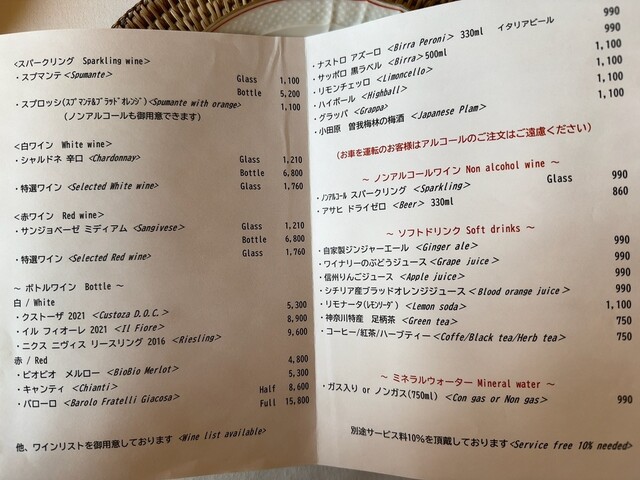 <スパークリング Sparkling wine>
・スプマンテ<Spumante> Glass 1,100
Bottle 5,200
・スプロッシ(スプマンテ&ブラッドオレンジ)<Spumante with orange> 1,100
(ノンアルコールも御用意できます)
<白ワイン White wine>
・シャルドネ 辛口<Chardonnay> Glass 1,210
Bottle 6,800
・特選ワイン <Selected White wine> Glass 1,760
<赤ワイン Red wine>
・サンジョベーゼ ミディアム <Sangivese> Glass 1,210
Bottle 6,800
・特選ワイン <Selected Red wine> Glass 1,760
~ ボトルワイン Bottle ~
白 / White
・クストーザ 2021 <Custoza D.O.C.> 5,300
・イル フィオーレ 2021 <Il Fiore> 8,900
・ニクス ニヴィス リースリング 2016 <Riesling> 9,600
赤 / Red
・ビオビオ メルロー <BioBio Merlot> 4,800
・キャンティ <Chianti> 5,300
・バローロ <Barolo Fratelli Giacosa> Half 8,600
Full 15,800
他、ワインリストを御用意しております <Wine list available>
・ナストロ アズーロ <Birra Peroni> 330ml イタリアビール 990
・サッポロ 黒ラベル <Birra>500ml 990
・リモンチェッロ <Limoncello> 1,100
・ハイボール <Highball> 1,100
・グラッパ <Grappa> 1,100
・小田原 曽我梅林の梅酒 <Japanese Plam> 1,100
(お車を運転のお客様はアルコールのご注文はご遠慮ください)
~ ノンアルコールワイン Non alcohol wine ~
・ノンアルコール スパークリング <Sparkling> Glass 990
・アサヒ ドライゼロ <Beer> 330ml 860
~ ソフトドリンク Soft drinks ~
・自家製ジンジャーエール <Ginger ale> 990
・ワイナリーのぶどうジュース <Grape juice> 990
・信州りんごジュース <Apple juice> 990
・シチリア産ブラッドオレンジジュース <Blood orange juice> 990
・リモナータ(レモンソーダ) <Lemon soda> 1,100
・神奈川特産 足柄茶 <Green tea> 750
・コーヒー/紅茶/ハーブティー <Coffe/Black tea/Herb tea> 750
~ ミネラルウォーター Mineral water ~
・ガス入り or ノンガス(750ml) <Con gas or Non gas> 990
別途サービス料10%を頂戴しております<Service free 10% needed>